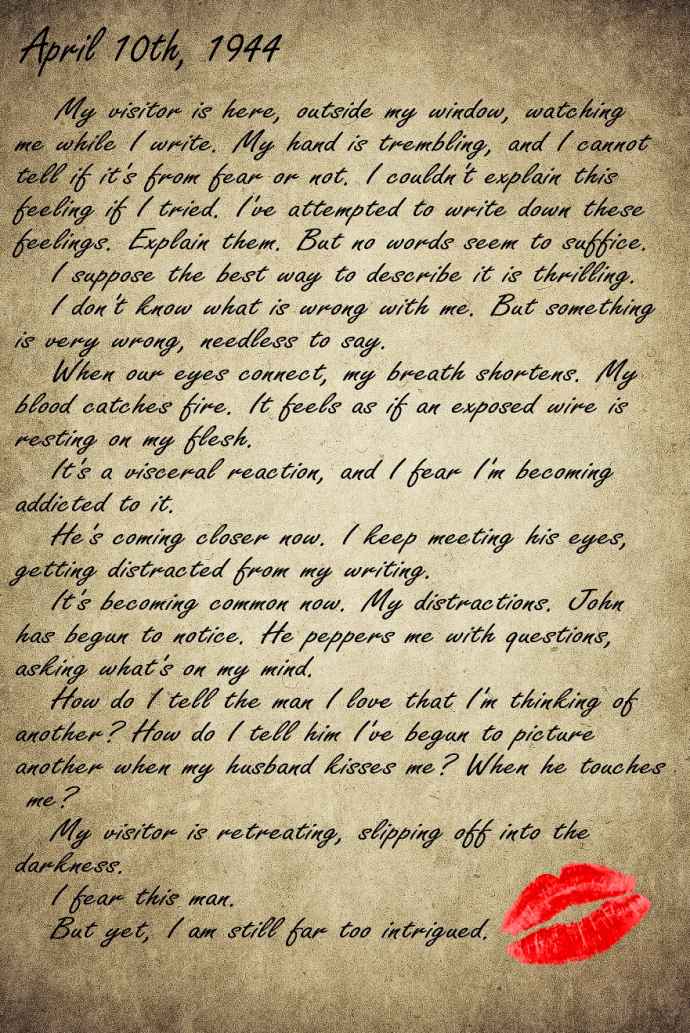 April 10th, 1944
My visitor is here, outside my window, watching
me while I write. My hand is trembling, and I cannot
tell if it's from fear or not. I couldn't explain this
feeling if I tried. I've attempted to write down these
feelings. Explain them. But no words seem to suffice.
I suppose the best way to describe it is thrilling.
I don't know what is wrong with me. But something
is very wrong, needless to say.
When our eyes connect, my breath shortens. My
blood catches fire. It feels as if an exposed wire is
resting on my flesh.
It's a visceral reaction, and I fear I'm becoming
addicted to it.
He's coming closer now. I keep meeting his eyes,
getting distracted from my writing.
It's becoming common now. My distractions. John
has begun to notice. He peppers me with questions,
asking what's on my mind.
How do I tell the man I love that I'm thinking of
another? How do I tell him I've begun to picture
another when my husband kisses me? When he touches
me?
My visitor is retreating, slipping off into the
darkness.
I fear this man.
But yet, I am still far too intrigued.